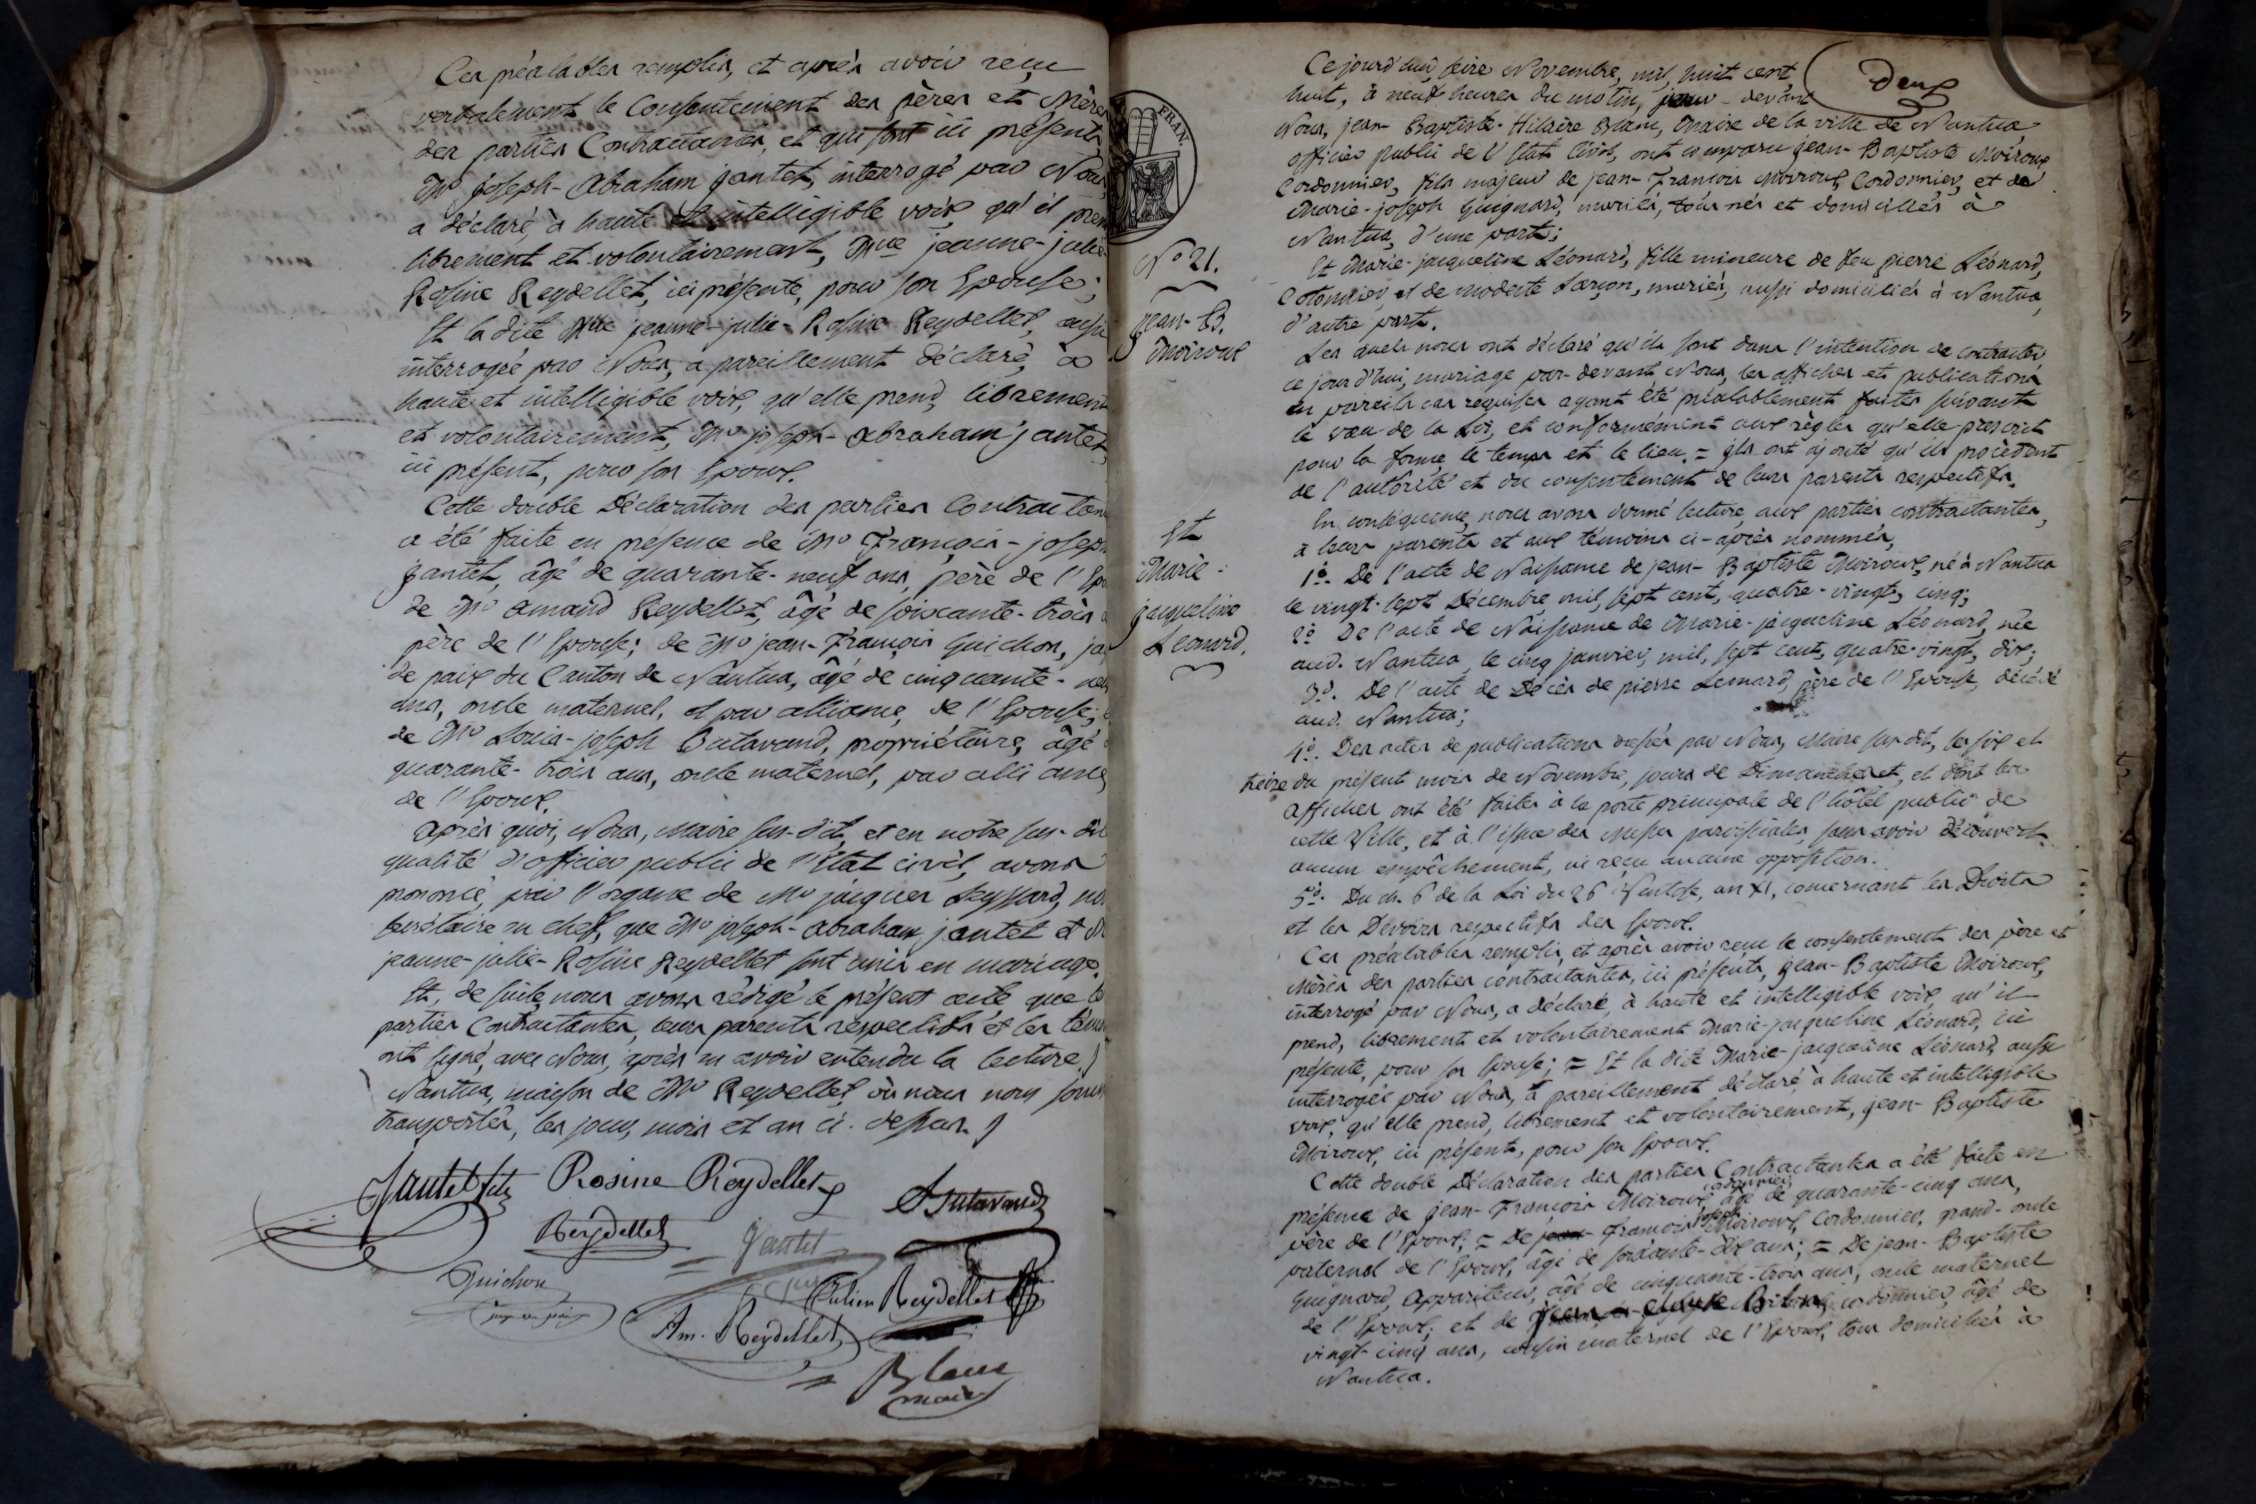 Ces préalables remplis, et après avoir reçu
verbalement le Consentement des pères et Mères
des parties Contractantes, et qui sont ici présents
Mr. joseph-abraham jantet, interrogé par Nous
a déclaré, à haute et intelligible voix, qu'il prend
librement et volontairement, Mlle jeanne-julie-
Rosine Reydellet, ici présente, pour son Epouse;
Et la dite Mlle jeanne-julie-Rosine Reydellet, aussi
interrogée par Nous, a pareillement déclaré, à
haute et intelligible voix, qu'elle prend, librement
et volontairement, Mr. joseph-abraham jantet,
ici présent, pour son Epoux.
Cette double Déclaration des parties Contractantes
a été faite en présence de Mr. François-joseph
jantet, âgé de quarante-neuf ans, père de l'Epoux
de Mr. amand Reydellet, âgé de soixante-trois
père de l'Epouse; de Mr. jean-François Guichon, juge
de paix du Canton de Nantua, âgé de cinquante-neuf
ans, oncle maternel, et par alliance, de l'Epouse;
de Mr. Louis-joseph Butavand, propriétaire, âgé
quarante-trois ans, oncle maternel, par alliance
de l'Epoux.
après quoi, Nous, Maire sus-dit, et en notre sus-dite
qualité d'officier public de l'état civil, avons
prononcé, par l'organe de Mr. jacques Seyssard, notre
secrétaire en chef, que Mr. joseph-abraham jantet et
jeanne-julie-Rosine Reydellet sont unis en mariage.
Et, de suite, nous avons rédigé le présent acte que les
parties Contractantes, leurs parents respectifs et les témoins
ont signé, avec Nous, après en avoir entendu la lecture.
Nantua, maison de Mr. Reydellet, où nous nous sommes
transportés, les jour, mois et an ci-dessus.
Jantet fils Rosine Reydellet Butavand
Reydellet Jantet
Guichon
juge de paix
Julien Reydellet
Am. Reydellet
Blanc
maire
FRAN.
Deux
Ce jourd'hui, seize Novembre, mil, huit cent
huit, à neuf heures du matin, par-devant
Nous, jean-Baptiste-Hilaire Blanc, Maire de la ville de Nantua,
officier public de l'état Civil, ont comparu jean-Baptiste Moiroux,
Cordonnier, fils majeur de jean-François Moiroux, Cordonnier, et de
Marie-joseph Guignard, mariés, tous nés et domiciliés à
Nantua, d'une part;
Et Marie-jacqueline Léonard, fille mineure de feu pierre Léonard,
Cotonnier, et de modeste Larçon, mariés, aussi domiciliés à Nantua,
d'autre part.
Les quels nous ont déclaré qu'ils sont dans l'intention de contracter
ce jourd'hui, mariage par-devant Nous, les affiches et publications
en pareils cas requises ayant été préalablement faites suivant
le vœu de la Loi, et conformément aux règles qu'elle prescrit
pour la forme, le temps et le lieu. = ils ont ajouté qu'ils procèdent
de l'autorité et du consentement de leurs parents respectifs.
En conséquence, nous avons donné lecture, aux parties contractantes,
à leurs parents et aux témoins ci-après nommés,
1°. De l'acte de Naissance de jean-Baptiste Moiroux, né à Nantua
le vingt-sept Décembre, mil, sept cent, quatre-vingt, cinq;
2° De l'acte de Naissance de Marie-jacqueline Léonard, née
aud. Nantua, le cinq janvier, mil, sept cent, quatre-vingt, dix;
3°. De l'acte de Décès de pierre Léonard, père de l'Epouse, décédé
aud. Nantua;
4°. Des actes de publications dressés par Nous, Maire sus-dit, les six et
treize du présent mois de Novembre, jours de Dimanche, et dont les
affiches ont été faites à la porte principale de l'hôtel public de
cette Ville, et à l'issue des Messes paroissiales, sans avoir découvert
aucun empêchement, ni reçu aucune opposition.
5°. Du ch. 6 de la Loi du 26 Ventose, an XI, concernant les Droits
et les Devoirs respectifs des Epoux.
Ces préalables remplis, et après avoir reçu le consentement des père et
Mères des parties contractantes, ici présents, jean-Baptiste Moiroux,
interrogé par Nous, a déclaré, à haute et intelligible voix, qu'il
prend, librement et volontairement Marie-jacqueline Léonard, ici
présente, pour son Epouse; = Et la dite Marie-jacqueline Léonard, aussi
interrogée par Nous, a pareillement déclaré, à haute et intelligible
voix, qu'elle prend, librement et volontairement, jean-Baptiste
Moiroux, ici présent, pour son Epoux.
Cette double Déclaration des parties Contractantes a été faite en
présence de jean-François Moiroux, cordonnier, âgé de quarante-cinq ans,
père de l'Epoux; = De François joseph Moiroux, Cordonnier, grand-oncle
paternel de l'Epoux, âgé de soixante-dix ans; = De jean-Baptiste
Guignard, appariteur, âgé de cinquante-trois ans, oncle maternel
de l'Epoux; et de cordonnier, âgé de
vingt-cinq ans, cousin maternel de l'Epoux, tous domiciliés à
Nantua.
N° 21.
jean-B.
Moiroux
Et
Marie-
jacqueline
Léonard.